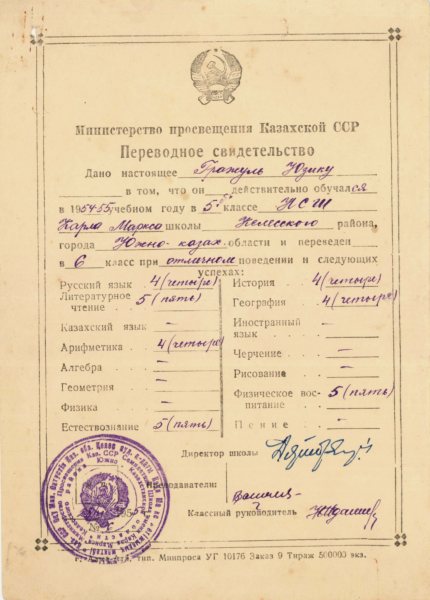 Министерство просвещения Казахской ССР
Переводное свидетельство
Дано настоящее Гражуль Юзику
в том, что он действительно обучался
в 195455 учебном году в 5ом классе НСШ
Карла Маркса школы Келесского района,
города Южно-казах. области и переведен
в 6 класс при отличном поведении и следующих
успехах:
Русский язык 4 (четыре)
Литературное
чтение 5 (пять)
Казахский язык –
Арифметика 4 (четыре)
Алгебра –
Геометрия –
Физика –
Естествознание 5 (пять)
История 4 (четыре)
География 4 (четыре)
Иностранный
язык –
Черчение –
Рисование –
Физическое вос-
питание 5 (пять)
Пение –
Директор школы
Преподаватели:
Классный руководитель
тип. Минпроса УГ 10176 Заказ 9 Тираж 500000 экз.